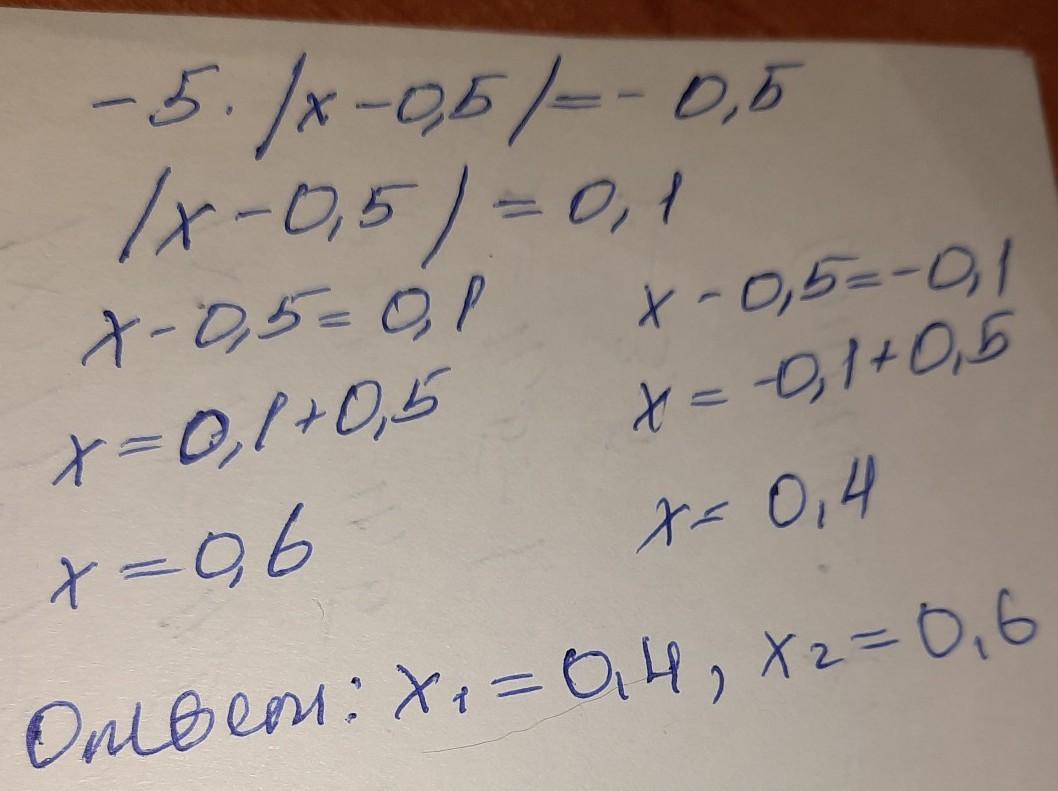 -5·|x-0,5|=-0,5
|x-0,5|=0,1
x-0,5=0,1 x-0,5=-0,1
x=0,1+0,5 x=-0,1+0,5
x=0,6 x=0,4
Ответ: x₁=0,4, x₂=0,6